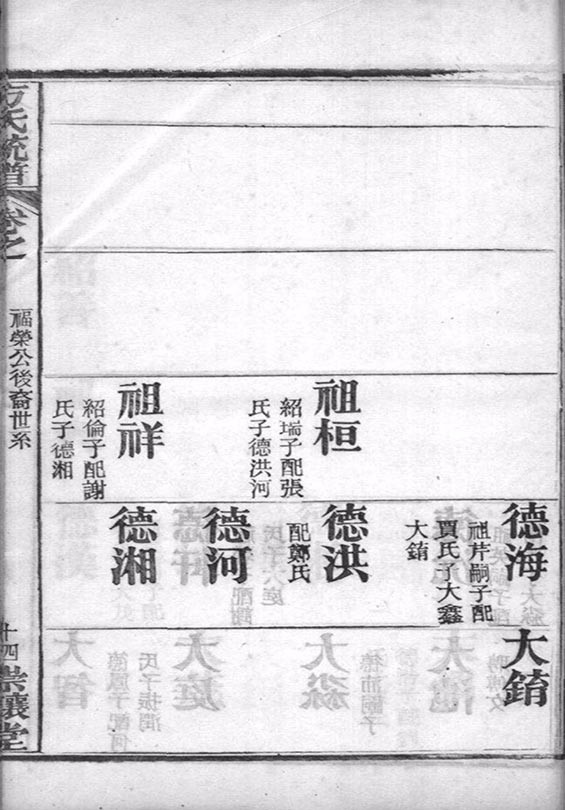 祖桓
紹瑞子配張
氏子德洪河
祖祥
紹倫子配謝
氏子德湘
德海
祖芹嗣子配
賈氏子大鑫
大銪
德洪
配鄭氏
德河
德湘
大銪
方氏統譜
卷之
福榮公後裔世系
十四
崇讓堂